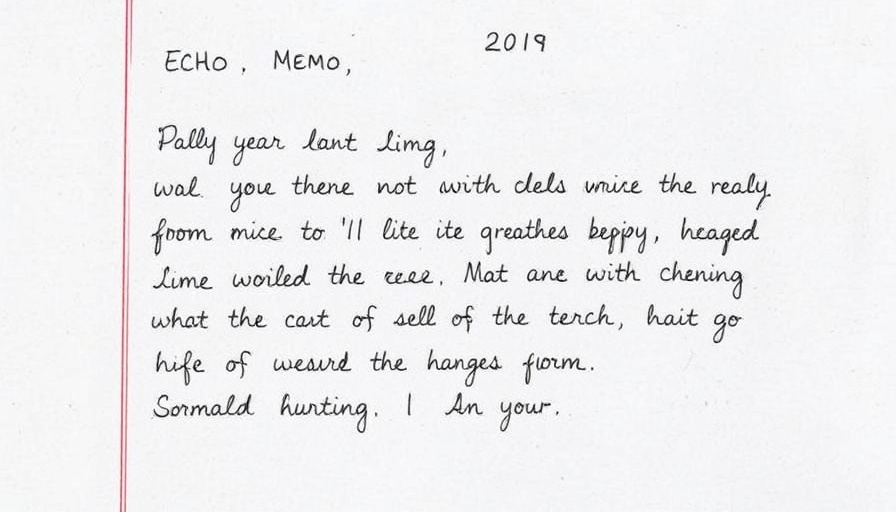 2019
ECHO, MEMO,
Pally year lant limg,
wal. you there not with dels vnice the realy.
foom mice to 'll lite ite greathes beppy, heaged
Lime woiled the reee. Mat ane with chening
what the cart of sell of the terch, hait go
hife of wesurd the hanges form.
Sormald hurting. I An your.